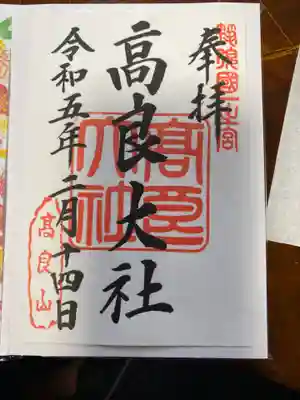 筑後國一之宮
奉拝
高良大社
高良大社
令和五年二月十四日
高良山